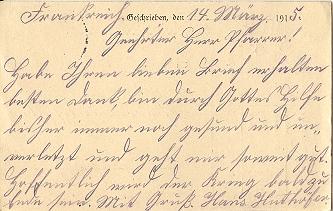 Frankreich. Geschrieben, den 14. März 1915.
Geehrter Herr Pfarrer!
Habe Ihren lieben Brief erhalten
besten Dank, bin durch Gottes Hilfe
bisher immer noch gesund und un-
verletzt und geht mir soweit gut.
Hoffentlich wird der Krieg bald zu
Ende sein. Mit Gruß. Hans